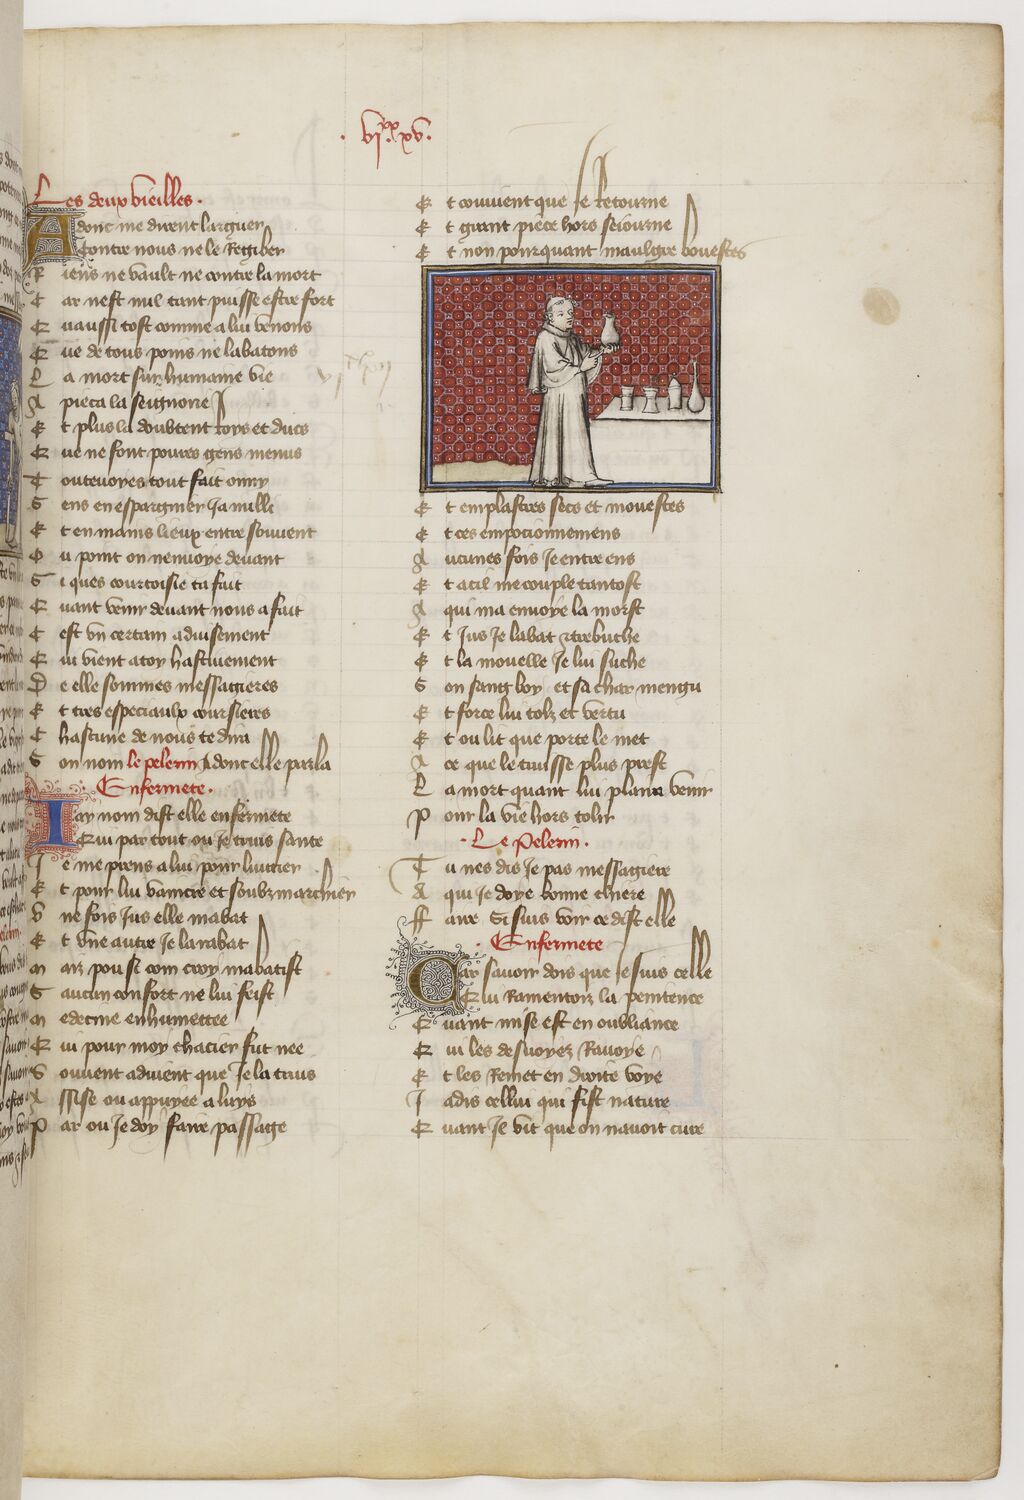 . vi.xx xv.
Les deux vieilles .
Adonc me dirent larguer
Contre nous ne le Regiber
Riens ne vault ne contre la mort
Car nest nul tant puisse estre fort
Quaussi tost comme a lui venons
Que de tous poins ne labatons
La mort sur humaine vie
A pieca la seignorie
Et plus la doubtent roys et ducs
Que ne font poures gens menus
En mains lieux entre souvent
Ou point on nenuoye deuant
Si ques courtoisie ta fait
Quant venir deuant nous a fait
Cest vn certain aduisement
Qui vient a toy hastiuement
De elle sommes messagieres
Et tres especiaulx coursieres
Chascune de nous te dira
Son nom le pelerin Adonc elle parla
Enfermete .
Iay nom dist elle enfermete
Qui par tout ou Je truis sante
Je me prens a lui pour luitier
Et pour lui vaincre et soubzmarchier
Vne fois Jus elle mabat
Et vne autre Je la rabat
Maiz pou se com croy mabatist
Saucun confort ne lui feist
Medecine en humettee
Qui pour moy chacier fut nee
Souuent aduient que Je la truis
Assise ou appuyee a luys
Par ou Je doy faire passage
Et conuient que Je Retourne
Et grant piece hors seiourne
Et non pourquant maulgre bouestes
Et emplastres secs et mouestes
Et ces empocionnemens
Aucunes fois Je entre ens
Et a cil me couple tantost
A qui ma enuoye la mort
Et Jus Je labat & trebuche
Et la mouelle Je lui suche
Son sang boy et sa char mengu
Et force lui tolz et vertu
Et ou lit que porte le met
A ce que le truisse plus prest
La mort quant lui plaira venir
Pour la vie hors tolir
. Le Pelerin .
Tu nes dis Je pas messagiere
A qui Je doye bonne chiere
Faire Si suis voir ce dist elle
. Enfermete
Car sauoir dois que Je suis celle
Qui Ramentoiz la penitence
Quant mise est en oubliance
Qui les desuoyez Rauoye
Et les Remet en droite voye
Jadis cellui qui fist nature
Quant Je vit que on nauoit cure